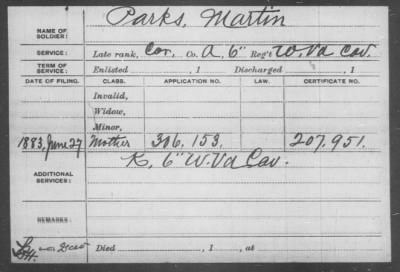 NAME OF SOLDIER: Parks, Martin
SERVICE: Late rank, Cor, Co. A, 6" Reg't W. Va Cav.
TERM OF SERVICE: Enlisted , 1 Discharged , 1
DATE OF FILING. CLASS. APPLICATION NO. LAW. CERTIFICATE NO.
Invalid,
Widow,
Minor,
1883, June 27 Mother 306,153. 207,951.
ADDITIONAL SERVICES: K, 6" W. Va Cav.
REMARKS:
Died , 1 , at